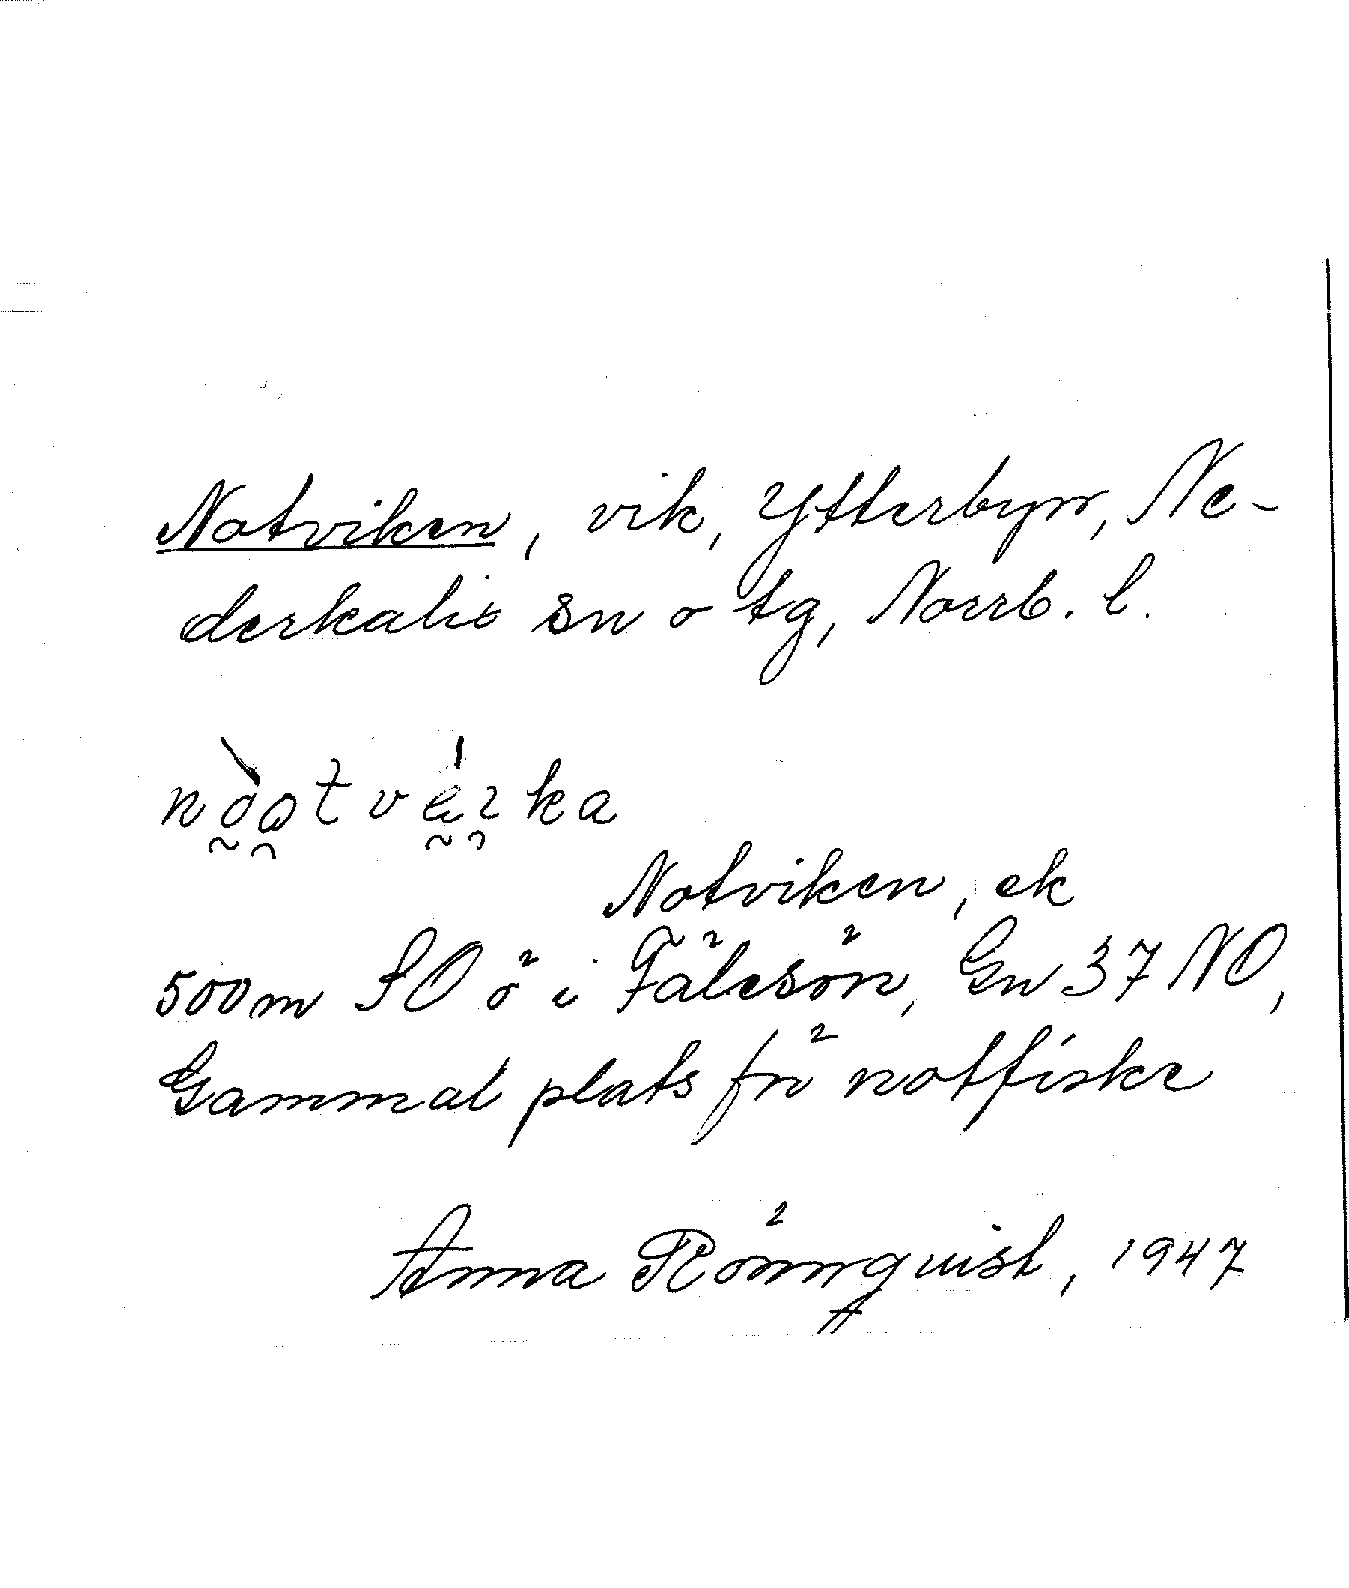 Notviken, vik, Ytterbyn, Ne-
derkalix sn o tg, Norrb. l.
Notviken, ek
500 m SO ö i Fälesön, Gn 37 NO,
Gammal plats för notfiske
Anna Rönnquist, 1947